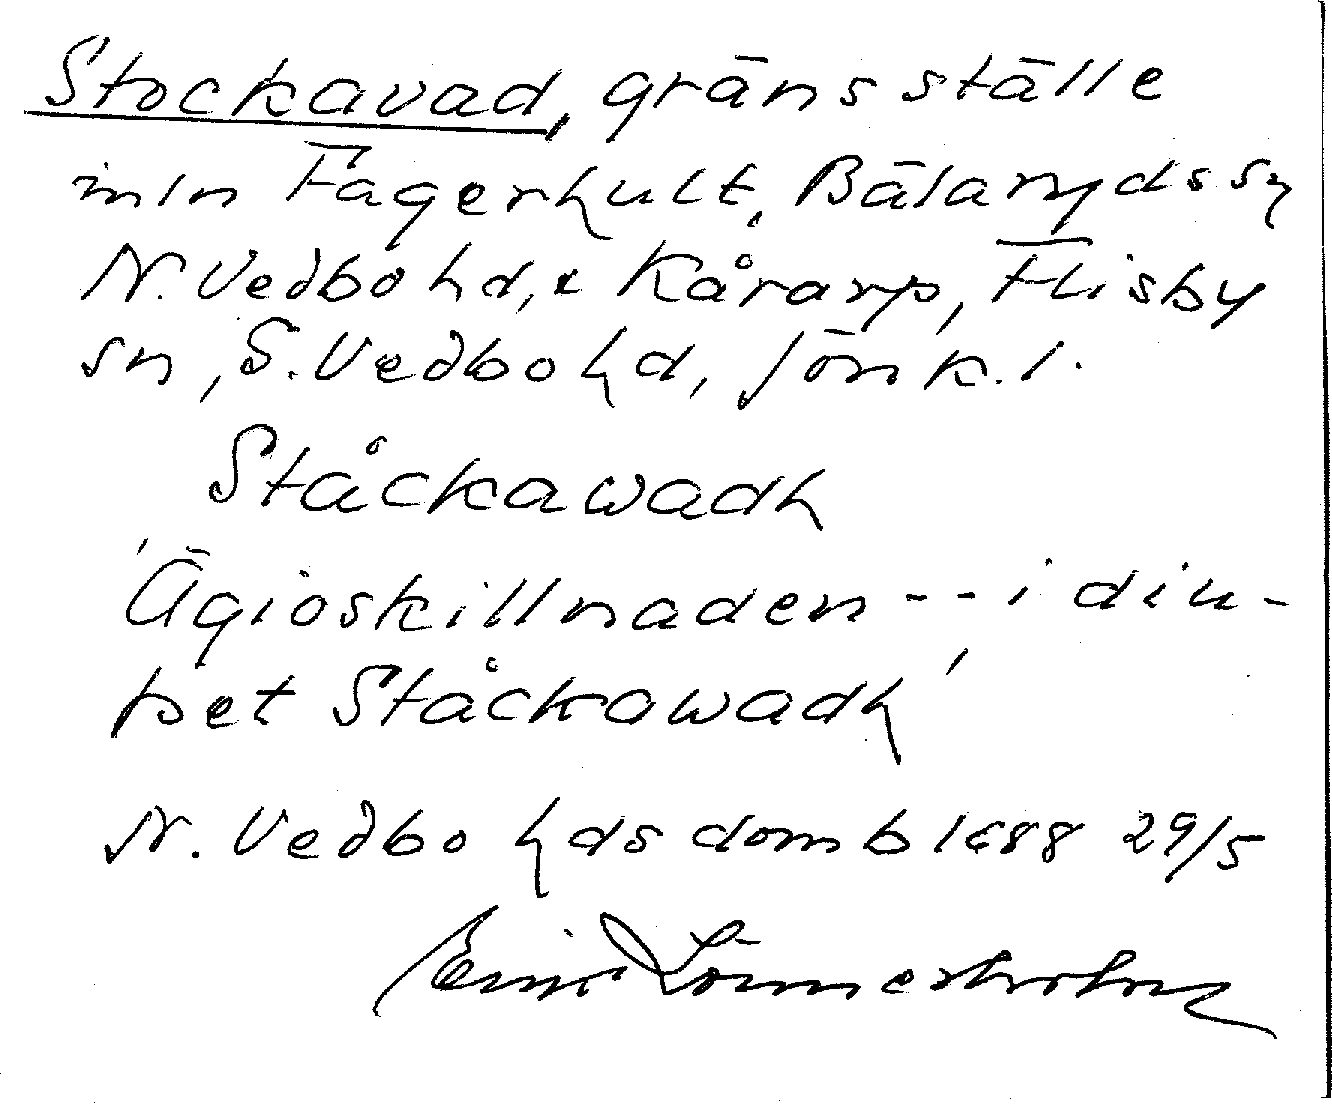 Stockavad, gränsställe
mln Fagerhult, Bälaryds sn
N. Vedbo hd, & Kårarp, Flisby
sn, S. Vedbo hd, Jönk. l.
Ståckawadh
'Ägioskillnaden -- i diu-
pet Ståckawadh'
N. Vedbo hds domb 1688 29/5
Einar Lönnerholm